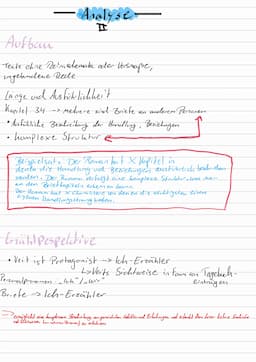 Analyse
II
Aufbau
Texte ohne Reimelemente oder Versmaße,
ungebundene Rede
Länge und Ausführlichkeit
Kapitel 34 → mehrere sind Briefe an anderen Personen
• Ausführliche Beschreibung der Handlung, Beziehungen
• komplexe Struktur
Beispielsatz: Der Roman hat X Kapitel in
denen die Handlung und Beziehungen ausführlich beschrieben
werden. Der Roman verfolgt eine komplexe Struktur, was man
an den Briefkapiteln erkennen kann.
Der Roman hat X Charaktere von denen die wichtigsten einen
Handlungsstrang haben.
Erzählperspektive
• Veit ist Protagonist → Ich-Erzähler
↳ Veits Sichtweise in Form von Tagebuch-
einträgen
Personalpronomen „Ich“/„wir“
Briefe → Ich-Erzähler
→ ermöglicht eine